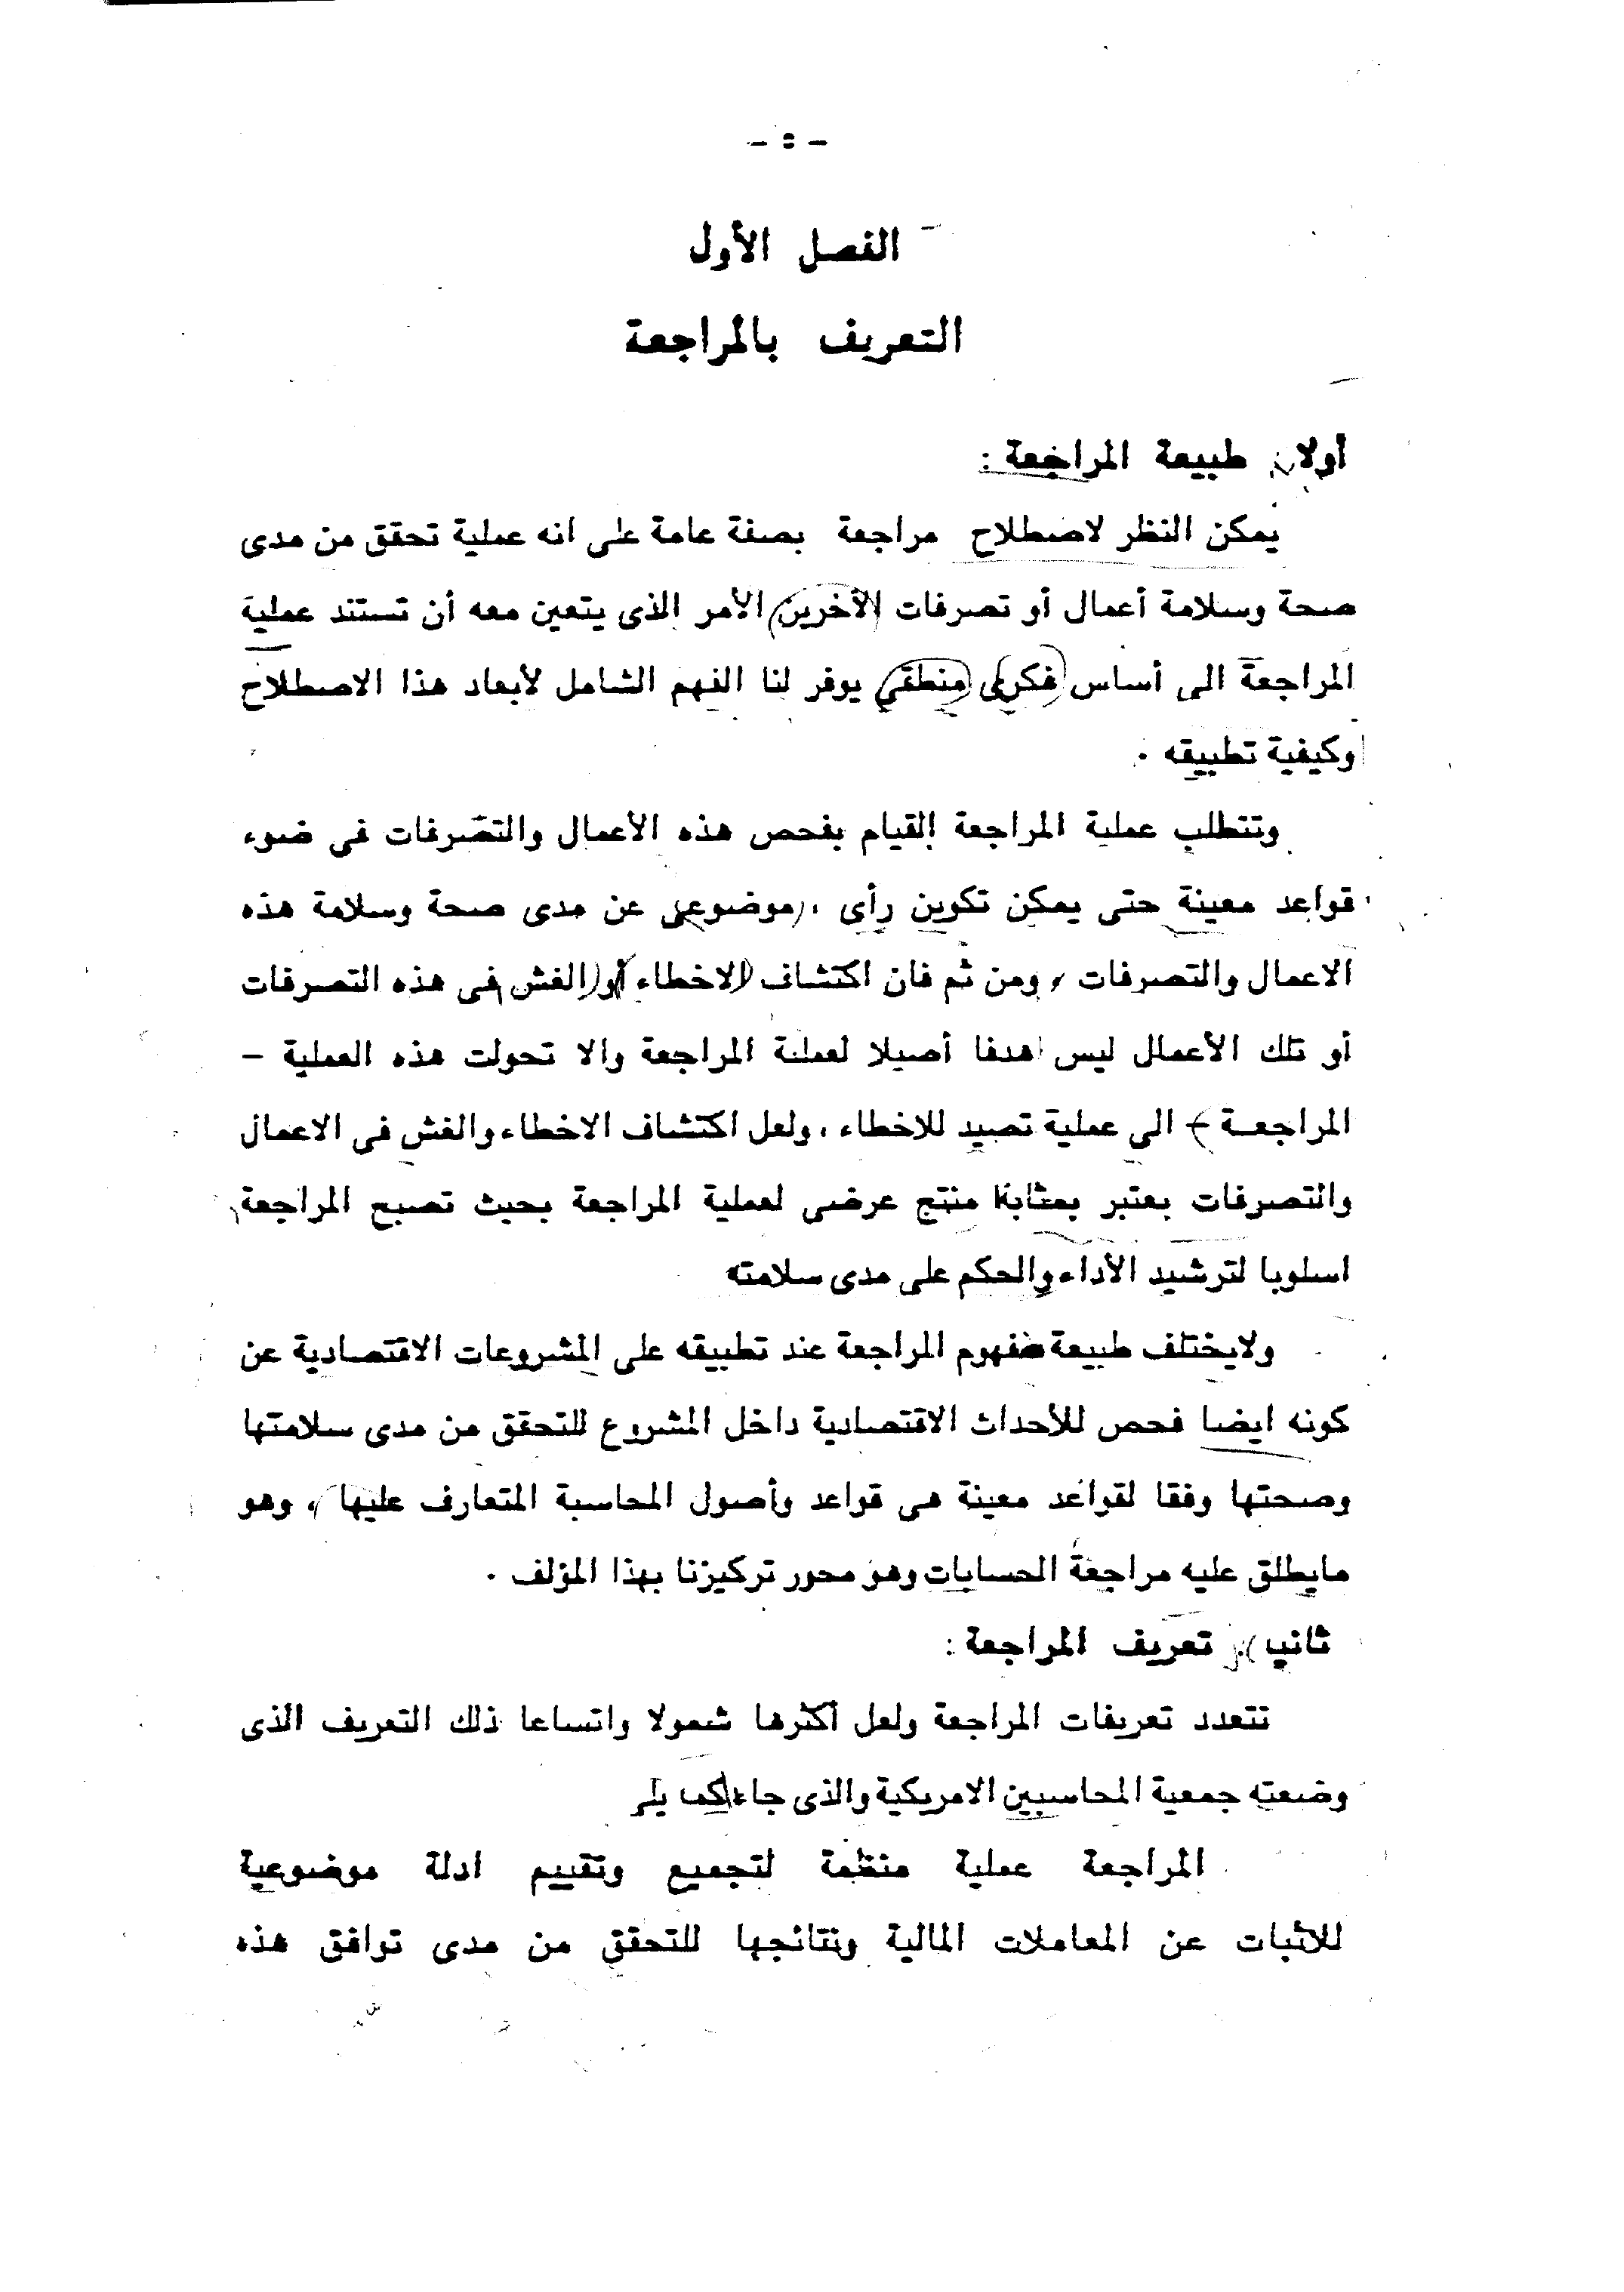 - ٥ -
الفصل الأول
التعريف بالمراجعة
أولا طبيعة المراجعة :
يمكن النظر لاصطلاح مراجعة بصفة عامة على انه عملية تحقق من مدى
صحة وسلامة أعمال أو تصرفات الآخرين الأمر الذى يتعين معه أن تستند عملية
المراجعة الى أساس فكرى منطقى يوفر لنا الفهم الشامل لأبعاد هذا الاصطلاح
وكيفية تطبيقه ٠
وتتطلب عملية المراجعة القيام بفحص هذه الأعمال والتصرفات فى ضوء
قواعد معينة حتى يمكن تكوين رأى ، موضوعى عن مدى صحة وسلامة هذه
الاعمال والتصرفات ، ومن ثم فان اكتشاف الاخطاء أو الغش فى هذه التصرفات
أو تلك الأعمال ليس هدفا أصيلا لعملية المراجعة والا تحولت هذه العملية -
المراجعة - الى عملية تصيد للاخطاء ، ولعل اكتشاف الاخطاء والغش فى الاعمال
والتصرفات يعتبر بمثابة منتج عرضى لعملية المراجعة بحيث تصبح المراجعة
اسلوبا لترشيد الأداء والحكم على مدى سلامته
ولايختلف طبيعة مفهوم المراجعة عند تطبيقه على المشروعات الاقتصادية عن
كونه ايضا فحص للأحداث الاقتصادية داخل المشروع للتحقق من مدى سلامتها
وصحتها وفقا لقواعد معينة هى قواعد وأصول المحاسبة المتعارف عليها ، وهو
مايطلق عليه مراجعة الحسابات وهو محور تركيزنا بهذا المؤلف ٠
ثانيا . تعريف المراجعة :
تتعدد تعريفات المراجعة ولعل أكثرها شمولا واتساعا ذلك التعريف الذى
وضعته جمعية المحاسبين الامريكية والذى جاء كما يلى
المراجعة عملية منظمة لتجميع وتقييم ادلة موضوعية
للاثبات عن المعاملات المالية ونتائجها للتحقق من مدى توافق هذه